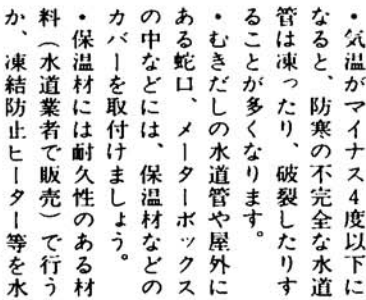 ・気温がマイナス4度以下に
なると、防寒の不完全な水道
管は凍ったり、破裂したりす
ることが多くなります。
・むきだしの水道管や屋外に
ある蛇口、メーターボックス
の中などには、保温材などの
カバーを取付けましょう。
・保温材には耐久性のある材
料(水道業者で販売)で行う
か、凍結防止ヒーター等を水